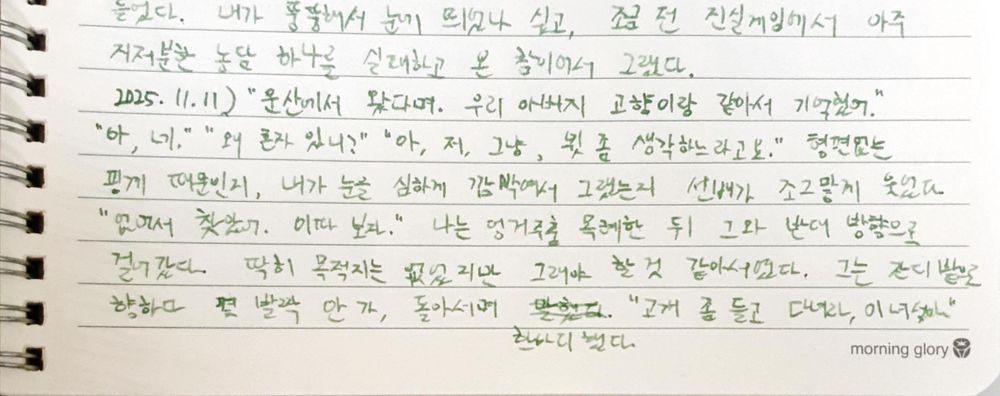 들었다. 내가 뚱뚱해서 눈에 띄었나 싶고, 조금 전 진실게임에서 아주
지저분한 농담 하나를 실패하고 온 참이어서 그랬다.
2025. 11. 11) "운산에서 왔다며. 우리 아버지 고향이랑 같아서 기억했어."
"아, 네." "왜 혼자 있니?" "아, 저, 그냥, 뭣 좀 생각하느라고요." 형편없는
핑계 때문인지, 내가 눈을 심하게 깜박여서 그랬는지 선배가 조그맣게 웃었다
"없어서 찾았어. 이따 보자." 나는 엉거주춤 목례한 뒤 그와 반대 방향으로
걸어갔다. 딱히 목적지는 없었지만 그래야 할 것 같아서였다. 그는 잔디밭으로
향하다 몇 발짝 안 가, 돌아서며 말했다. "고개 좀 들고 다녀라, 이 녀석아"
한마디 했다.
morning glory